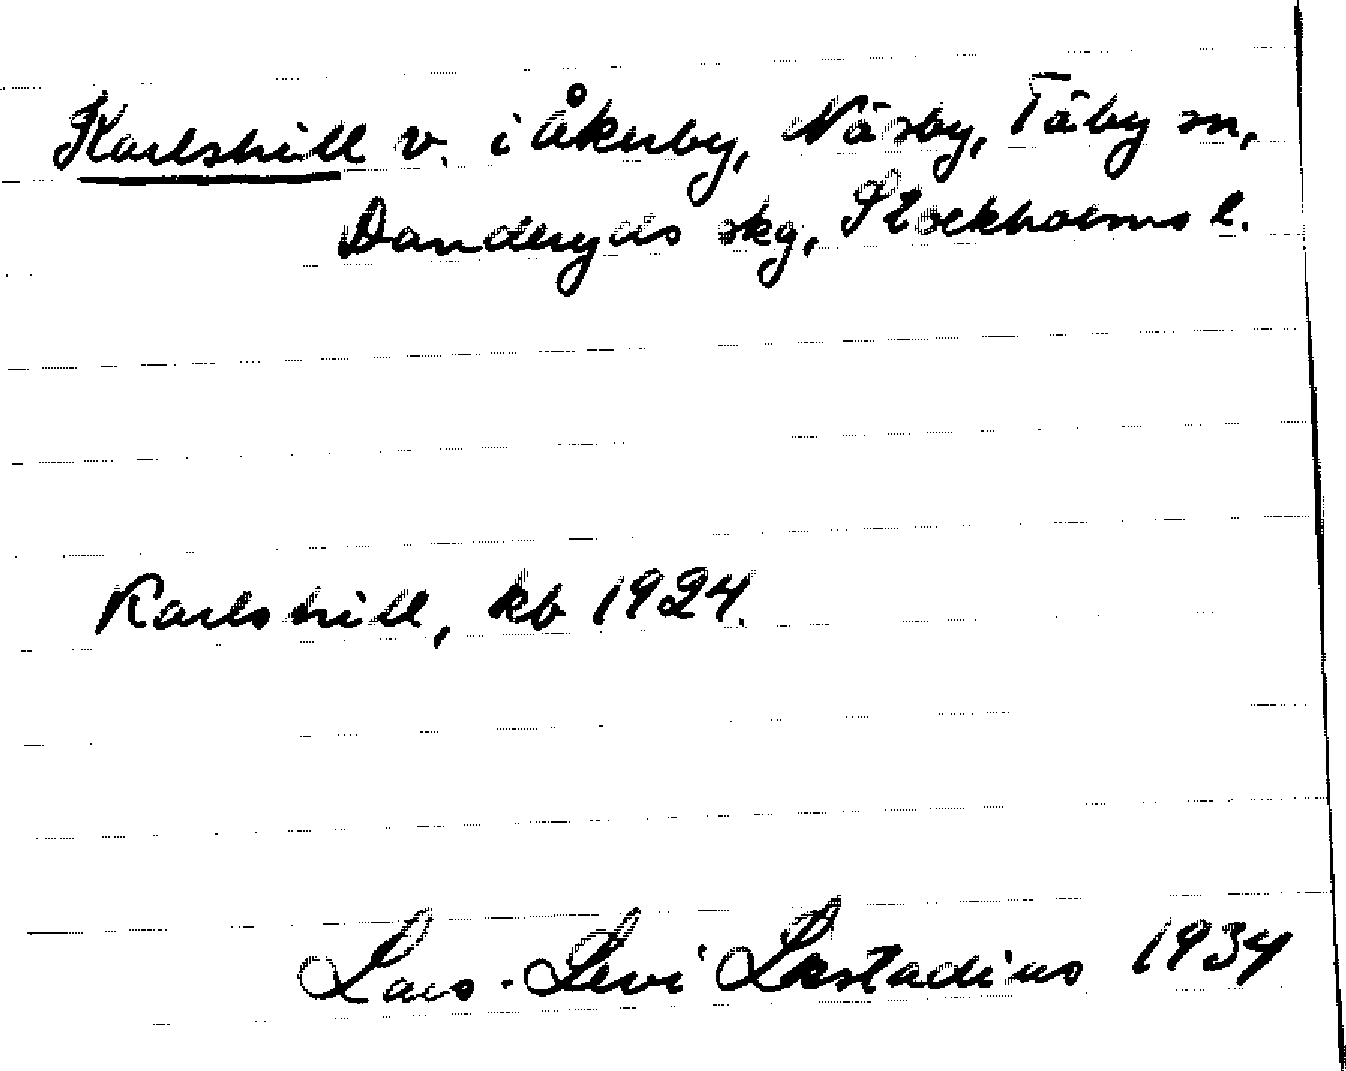 Karlshill v. i Åkerby, Näsby, Täby sn,
Danderyds skg, Stockholms l.
Karlshill, kb 1924.
Lars-Levi Læstadius 1934